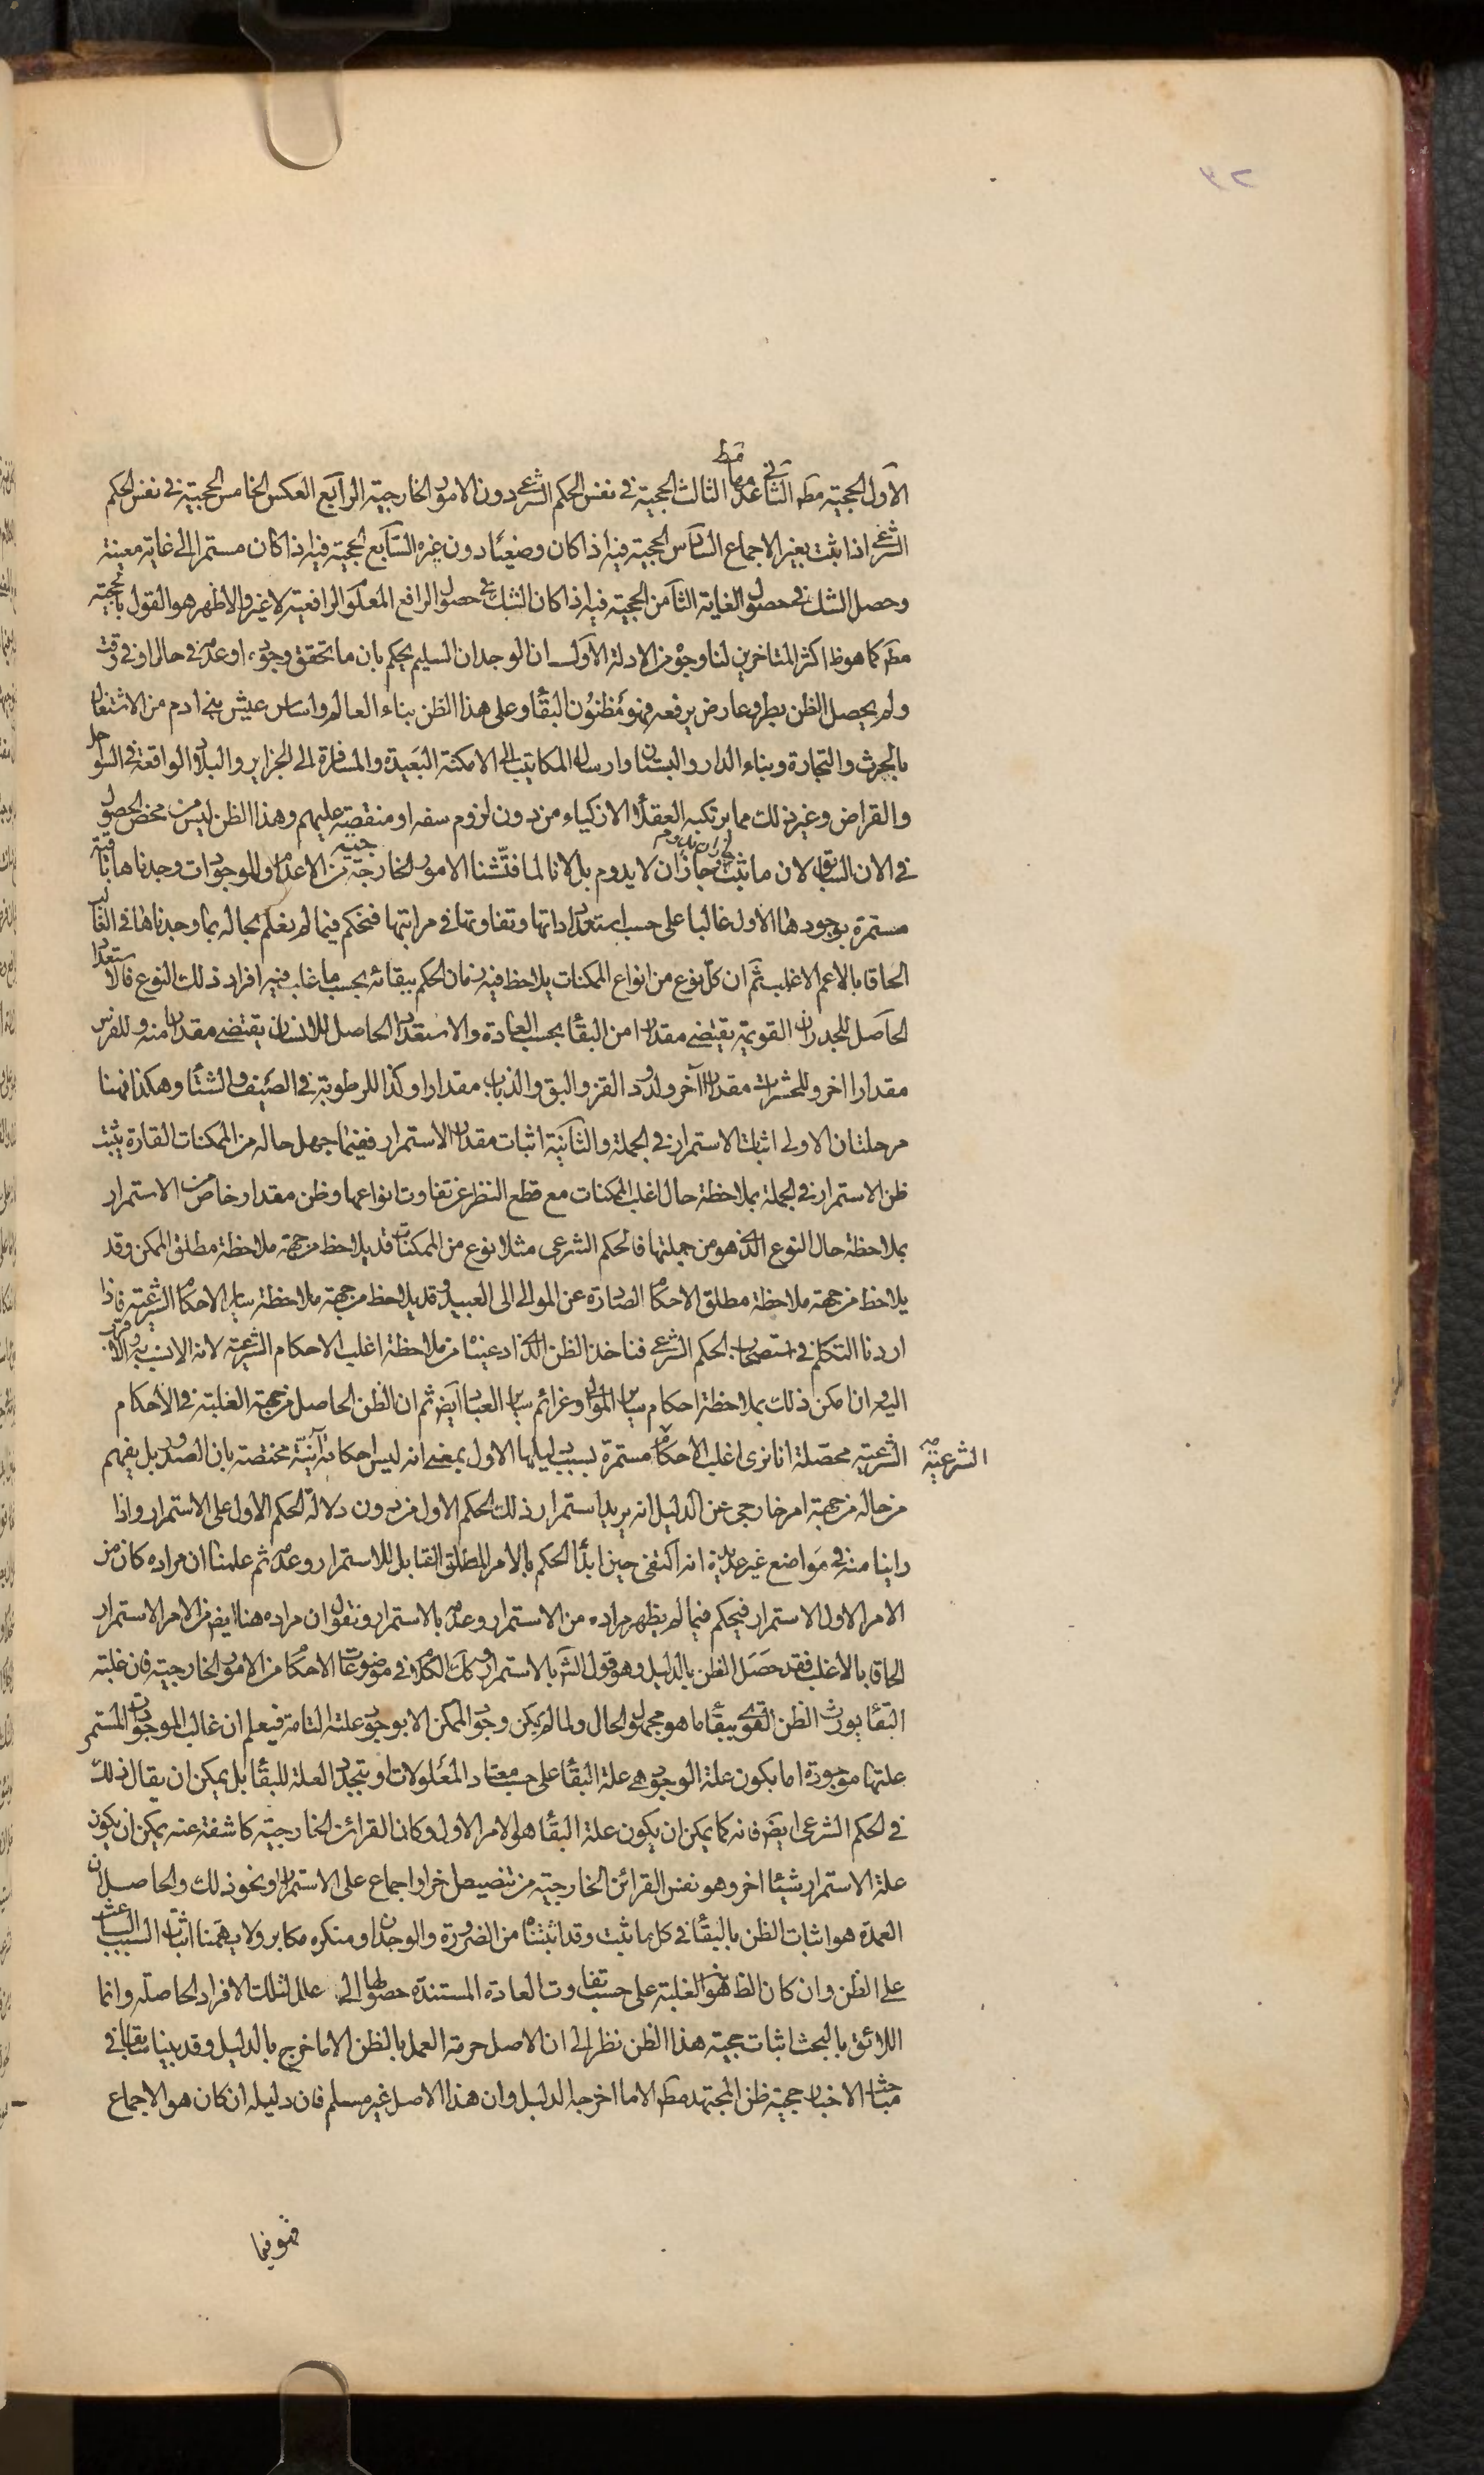 ٣٢
الاول الحجية مطـ الثاني عدمها مطـ الثالث الحجية في نفس الحكم الشرعي دون الامور الخارجية الرابع العكس الخامس الحجية في نفس الحكم
الشرعي اذا ثبت بغير الاجماع السادس الحجية فيه اذا كان وضعيا دون غيره السابع الحجية فيه اذا كان مستمرا الى غاية معينة
وحصل الشك في حصول الغاية الثامن الحجية فيه اذا كان الشك في حصول الرافع المعلوم الرافعية لا غير والاظهر هو القول بالحجية
مطـ كما هو ظـ اكثر المتاخرين لنا وجوه من الادلة الاول ان الوجدان السليم يحكم بان ما تحقق وجوده او عدمه في حال او في وقت
ولم يحصل الظن بطرو عارض يرفعه فهو مظنون البقاء وعلى هذا الظن بناء العالم واساس عيش بني ادم من الاشتغال
بالحرث والتجارة وبناء الدار والبستان وارسال المكاتيب الى الامكنة البعيدة والمسافرة الى الجزاير والبلاد الواقعة في السواحل
والقراض وغير ذلك مما يرتكبه العقلاء الازكياء من دون لزوم سفه او منقصة عليهم وهذا الظن ليس من محض الحصول
في الان السابق لان ما ثبت جاز ان يدوم وجاز ان لا يدوم بل لانا لما فتشنا الامور الخارجية من الاعدام والموجودات وجدناها باقية
مستمرة بوجودها الاول غالبا على حسب استعداداتها وتفاوتها في مراتبها فنحكم فيما لم نعلم بحاله بما وجدناها في الغالب
الحاقا بالاعم الاغلب ثم ان كل نوع من انواع الممكنات يلاحظ فيه زمان الحكم ببقائه بحسب ما غلب فيه افراد ذلك النوع فالاستعداد
الحاصل للجدران القويمة يقتضي مقدارا من البقاء بحسب العادة والاستعداد الحاصل للانسان يقتضي مقدارا منه وللفرس
مقدارا اخر وللحشرات مقدارا آخر ولدود القز والبق والذباب مقدارا وكذا للرطوبة في الصيف والشتاء وهكذا فهنا
مرحلتان الاولى اثبات الاستمرار في الجملة والثانية اثبات مقدار الاستمرار ففيما جهل حاله من الممكنات القارة يثبت
ظن الاستمرار في الجملة بملاحظة حال اغلب الممكنات مع قطع النظر عن تفاوت انواعها وظن مقدار خاص من الاستمرار
بملاحظة حال النوع الذي هو من جملتها فالحكم الشرعي مثلا نوع من الممكنات قد يلاحظ من جهة ملاحظة مطلق الممكن وقد
يلاحظ من جهة ملاحظة مطلق الاحكام الصادرة عن الموالي الى العبيد وقد يلاحظ من جهة ملاحظة ساير الاحكام الشرعية فاذا
اردنا التكلم في استصحاب الحكم الشرعي فناخذ الظن الذي ادعيناه من ملاحظة اغلب الاحكام الشرعية لانه الانسب به والاقرب
اليه وان امكن ذلك بملاحظة احكام ساير الموالي وعزائم ساير العباد ايضـ ثم ان الظن الحاصل من جهة الغلبة في الاحكام
الشرعية محصلة انا نرى اغلب الاحكام الشرعية مستمرة بسبب دليلها الاول بمعنى انه ليس احكاما آنية مختصة بان الصدور بل يفهم
من حاله من جهة امر خارجي عن الدليل انه يريد استمرار ذلك الحكم الاول من دون دلالة الحكم الاول على الاستمرار واذا
راينا منه في مواضع غير عديدة انه اكتفى حين ابداء الحكم بالامر المطلق القابل للاستمرار وعدمه ثم علمنا ان مراده كان من
الامر الاول الاستمرار فنحكم فيما لم يظهر مراده من الاستمرار وعدمه بالاستمرار ونقول ان مراده هنا ايضـ من الامر الاستمرار
الحاقا بالاغلب فقد حصل الظن بالدليل وهو قول الشـ بالاستمرار وكك الكلام في موضوعات الاحكام من الامور الخارجية فان غلبة
البقاء يورث الظن القوي ببقاء ما هو مجهول الحال ولما لم يكن وجود الممكن الا بوجود علته التامة فيعلم ان غالب الموجودات المستمر
علتها موجودة اما بكون علة الوجود هي علة البقاء على حسب معتاد المعلولات او بتجدد العلة للبقاء بل يمكن ان يقال ذلك
في الحكم الشرعي ايضـ فانه كما يمكن ان يكون علة البقاء هو الامر الاول وكان القرائن الخارجية كاشفة عنه يمكن ان يكون
علة الاستمرار شيئا اخر وهو نفس القرائن الخارجية من تنصيص اخر او اجماع على الاستمرار ونحو ذلك والحاصل ان
العمدة هو اثبات الظن بالبقاء في كل ما ثبت وقد اثبتناه من الضرورة والوجدان ومنكره مكابر ولا يهمنا اثبات السبب الباعث
على الظن وان كان الظـ هو الغلبة على حسب تفاوت العادة المستندة حصولها الى علل لتلك الافراد الحاصلة وانما
اللائق بالبحث اثبات حجية هذا الظن نظرا الى ان الاصل حرمة العمل بالظن الا ما خرج بالدليل وقد بينا سابقا في
مباحث الاخبار حجية ظن المجتهد مطـ الا ما اخرجه الدليل وان هذا الاصل غير مسلم فان دليله ان كان هو الاجماع
فهو فيما